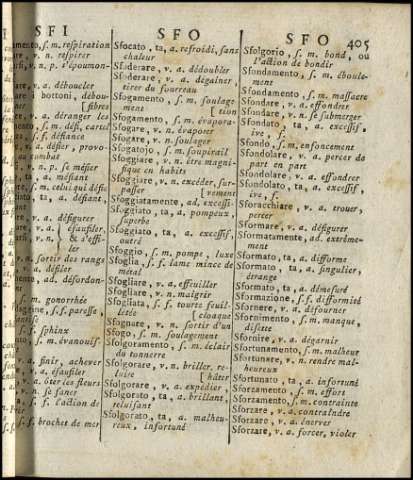 SFI
SFO
SFO
405
mento, s. m. respiration
are, v. n. respirer
v. n. p. s'époumon-
are, v. a. déboucler
are i bottoni, débou-
[fibres
are, v. a. déranger les
mento, s. m. défi, cartel
s. f. défiance
are, v. a. défier, provo-
au combat
v. n. p. se méfier
ta, a. méfiant
s. m. celui qui défie
ta, a. défiant,
v. a. défigurer
v. a. { éfaufiler,
v. n. { & s'effi-
ler
v. a. sortir des rangs
v. a. défiler
ad. désordon-
s. m. gonorrhée
s. f. paresse,
sphinx
s. m. évanouis-
v. a. finir, achever
v. a. éfaufiler
v. a. ôter les fleurs
v. n. se faner
s. f. l'action de
s. f. brochet de mer
Sfocato, ta, a. refroidi, sans
chaleur
Sfoderare, v. a. dédoubler
Sfoderare, v. a. dégaîner,
tirer du fourreau
Sfogamento, s. m. soulage-
[tion
Sfogamento, s. m. évapora-
Sfogare, v. n. évaporer
Sfogare, v. n. soulager
Sfogatojo, s. m. soupirail
Sfoggiare, v. n. être magni-
fique en habits
Sfoggiare, v. n. excéder, sur-
passer [vement
Sfoggiatamente, ad. excessi-
Sfoggiato, ta, a. pompeux,
superbe
Sfoggiato, ta, a. excessif,
outré
Sfoggio, s. m. pompe, luxe
Sfoglia, s. f. lame mince de
métal
Sfogliare, v. a. effeuiller
Sfogliare, v. n. maigrir
Sfogliata, s. f. tourte feuil-
letée [cloaque
Sfognare, v. n. sortir d'un
Sfogo, s. m. soulagement
Sfolgoramento, s. m. éclair
du tonnerre
Sfolgorare, v. n. briller, re-
luire [hâter
Sfolgorare, v. a. expédier,
Sfolgorato, ta, a. brillant,
reluisant
Sfolgorato, ta, a. malheu-
reux, infortuné
Sfolgorio, s. m. bond, ou
l'action de bondir
Sfondamento, s. m. éboule-
ment
Sfondamento, s. m. massacre
Sfondare, v. a. effondrer
Sfondare, v. n. se submerger
Sfondato, ta, a. excessif,
ive, f.
Sfondo, s. m. enfoncement
Sfondolare, v. a. percer de
part en part
Sfondolare, v. a. effondrer
Sfondolato, ta, a. excessif,
ive, f.
Sforacchiare, v. a. trouer,
percer
Sformare, v. a. défigurer
Sformatamente, ad. extrême-
ment
Sformato, ta, a. difforme
Sformato, ta, a. singulier,
étrange
Sformato, ta, a. démesuré
Sformazione, s. f. difformité
Sfornare, v. a. défourner
Sfornimento, s. m. manque,
disette
Sfornire, v. a. dégarnir
Sfortunamento, s. m. malheur
Sfortunare, v. n. rendre mal-
heureux
Sfortunato, ta, a. infortuné
Sforzamento, s. m. effort
Sforzamento, s. m. contrainte
Sforzare, v. a. contraindre
Sforzare, v. a. énerver
Sforzare, v. a. forcer, violer